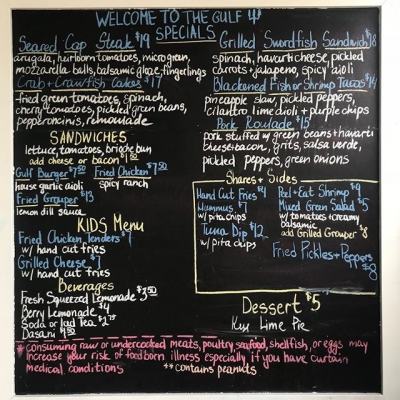 WELCOME TO THE GULF
SPECIALS
Seared Cap Steak $19
arugala, heirloom tomatoes, microgreen,
mozzarella balls, balsamic glaze, fingerlings
Crab + Crawfish Cakes $17
fried green tomatoes, spinach,
cherry tomatoes, pickled green beans,
pepperoncinis, remoulade
SANDWICHES
lettuce, tomatoes, brioche bun
add cheese or bacon $1.50
Gulf Burger $7.50 Fried Chicken $7.50
house garlic aioli spicy ranch
Fried Grouper $13
lemon dill sauce
KIDS Menu
Fried Chicken Tenders
w/ hand cut fries
Grilled Cheese
w/ hand cut fries
Beverages
Fresh Squeezed Lemonade $3.50
Berry Lemonade $4
Soda or Iced Tea $2.75
Dasani
Grilled Swordfish Sandwich $18
spinach, havarti cheese, pickled
carrots + jalapeno, spicy aioli
Blackened Fish or Shrimp Tacos $14
pineapple slaw, pickled peppers,
cilantro lime aioli + purple chips
Pork Roulade $15
pork stuffed w/ green beans + havarti
cheese + bacon, grits, salsa verde,
pickled peppers, green onions
Shares + Sides
Hand Cut Fries $4
Hummus $7
w/ pita chips
Tuna Dip $12
w/ pita chips
Peel + Eat Shrimp $9
Mixed Green Salad $5
w/ tomatoes + creamy
balsamic
add Grilled Grouper $8
Fried Pickles + Peppers
$8
Dessert $5
Key Lime Pie
* consuming raw or undercooked meats, poultry, seafood, shellfish, or eggs may
increase your risk of foodborn illness especially if you have curtain
medical conditions **contains peanuts